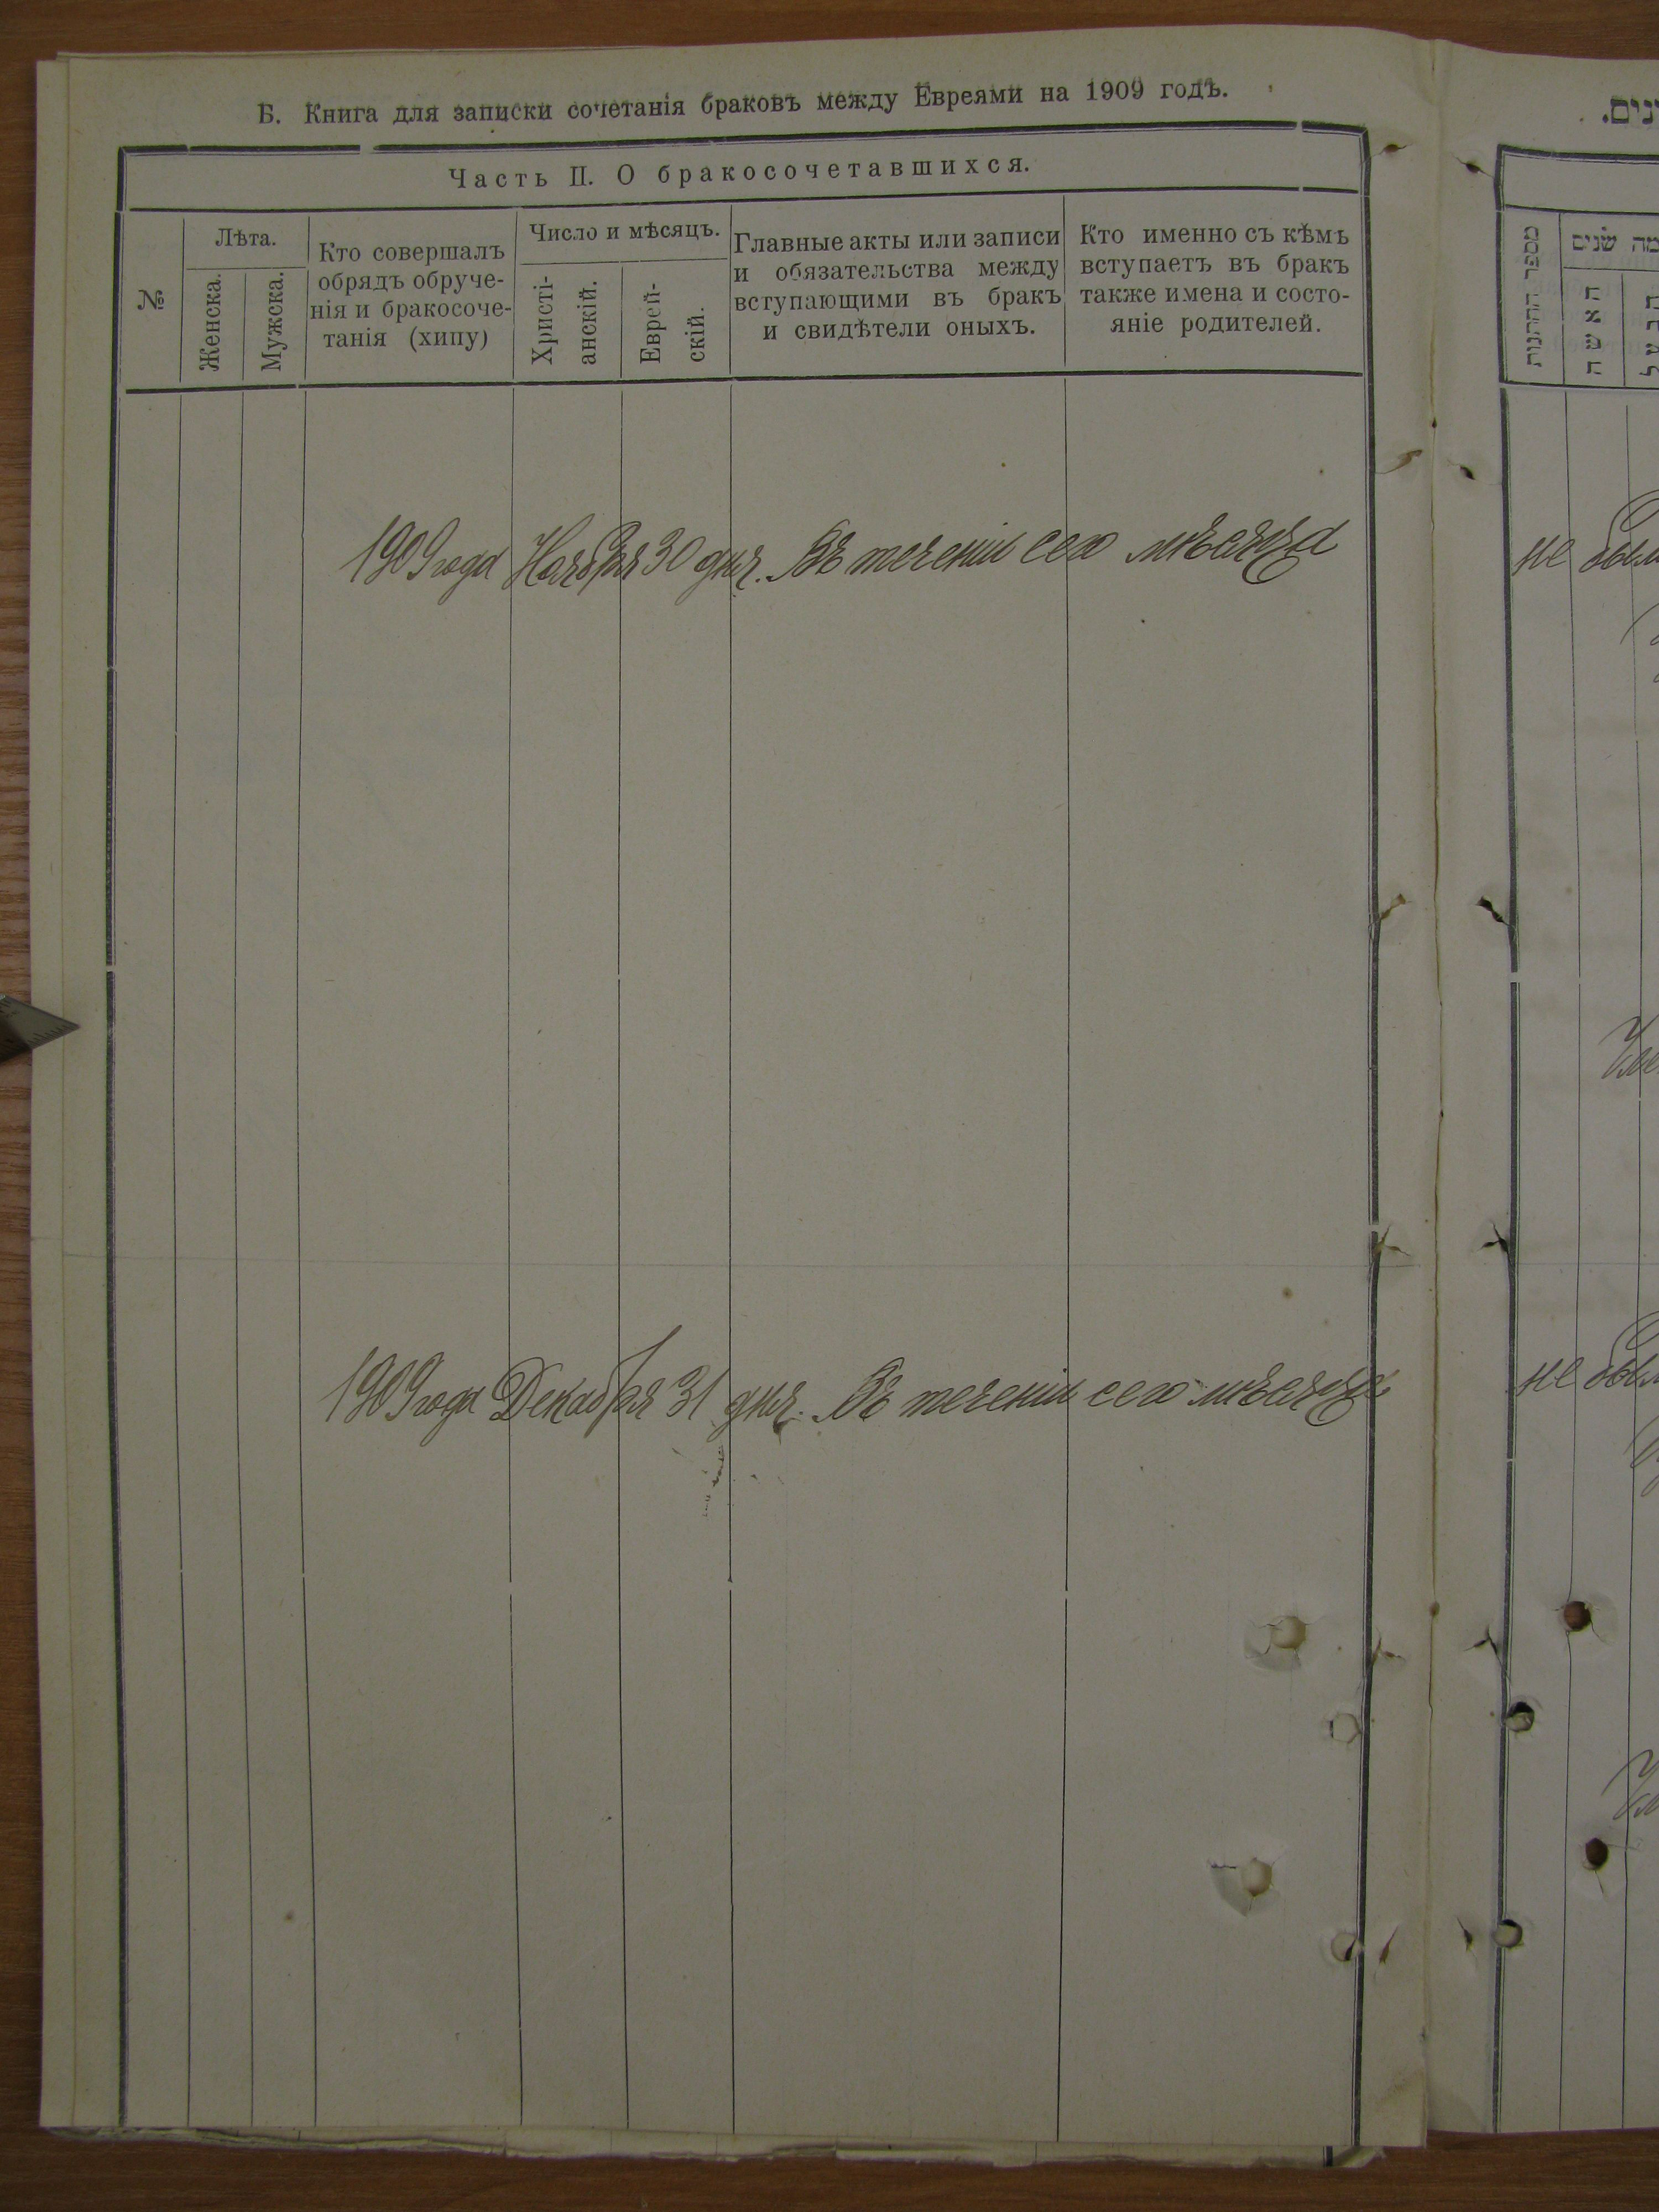 Б. Книга для записки сочетанія браковъ между Евреями на 1909 годъ.
Часть II. О бракосочетавшихся.
№
Лѣта.
Женска.
Мужска.
Кто совершалъ
обрядъ обруче-
нія и бракосоче-
танія (хипу)
Число и мѣсяцъ.
Христі-
анскій.
Еврей-
скій.
Главные акты или записи
и обязательства между
вступающими въ бракъ
и свидѣтели оныхъ.
Кто именно съ кѣмъ
вступаетъ въ бракъ
также имена и состо-
яніе родителей.
1909 года Ноября 30 дня. Въ теченіи сего мѣсяца
1909 года Декабря 31 дня. Въ теченіи сего мѣсяца
מספר החתונות
מה שנים
האשה
הבעל
не
не